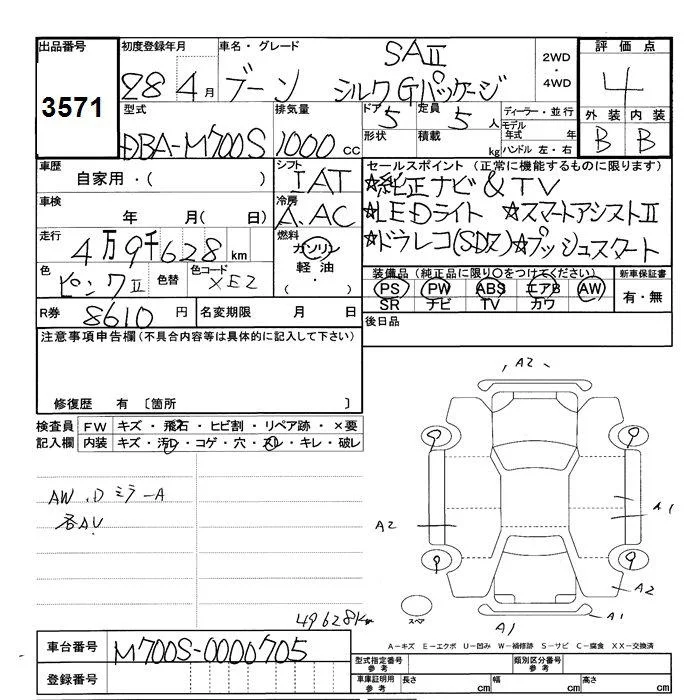 出品番号 初度登録年月 車名・グレード SAⅡ 2WD・4WD 評価点
3571 28 4月 ブーン シルクGパッケージ 4
型式 排気量 ドア 5 定員 5人 ディーラー・並行 外装 内装
DBA-M700S 1000cc 形状 積載 kg モデル年式 年 ハンドル 左・右 B B
車歴 自家用・( ) シフト IAT セールスポイント (正常に機能するものに限ります)
☆純正ナビ&TV
車検 年 月( 日) 冷房 A.AC ☆LEDライト ☆スマートアシストⅡ
走行 4万9千628km 燃料 ガソリン 軽油 ( ・ ) ☆ドラレコ(SDズ)☆プッシュスタート
色 ピンクⅡ 色替 色コード XE2 装備品(純正品に限り○をつけてください) 新車保証書
PS PW ABS エアB AW 有・無
SR ナビ TV カワ
R券 8610円 名変期限 月 日 後日品
注意事項申告欄(不具合内容等は具体的に記入して下さい)
修復歴 有 〔箇所 〕
検査員記入欄 FW キズ・飛石・ヒビ割・リペア跡・×要
内装 キズ・汚れ・コゲ・穴・スレ・キレ・破レ
AW.Dミラ-A
各AU
49628Km
A2
A2
A1
A2
A1
A1
スペア
A-キズ E-エクボ U-凹み W-補修跡 S-サビ C-腐食 XX-交換済
車台番号 M700S-0000705
登録番号
型式指定番号 参考 類別区分番号 参考
車庫証明用 参考 長さ cm 幅 cm 高さ cm